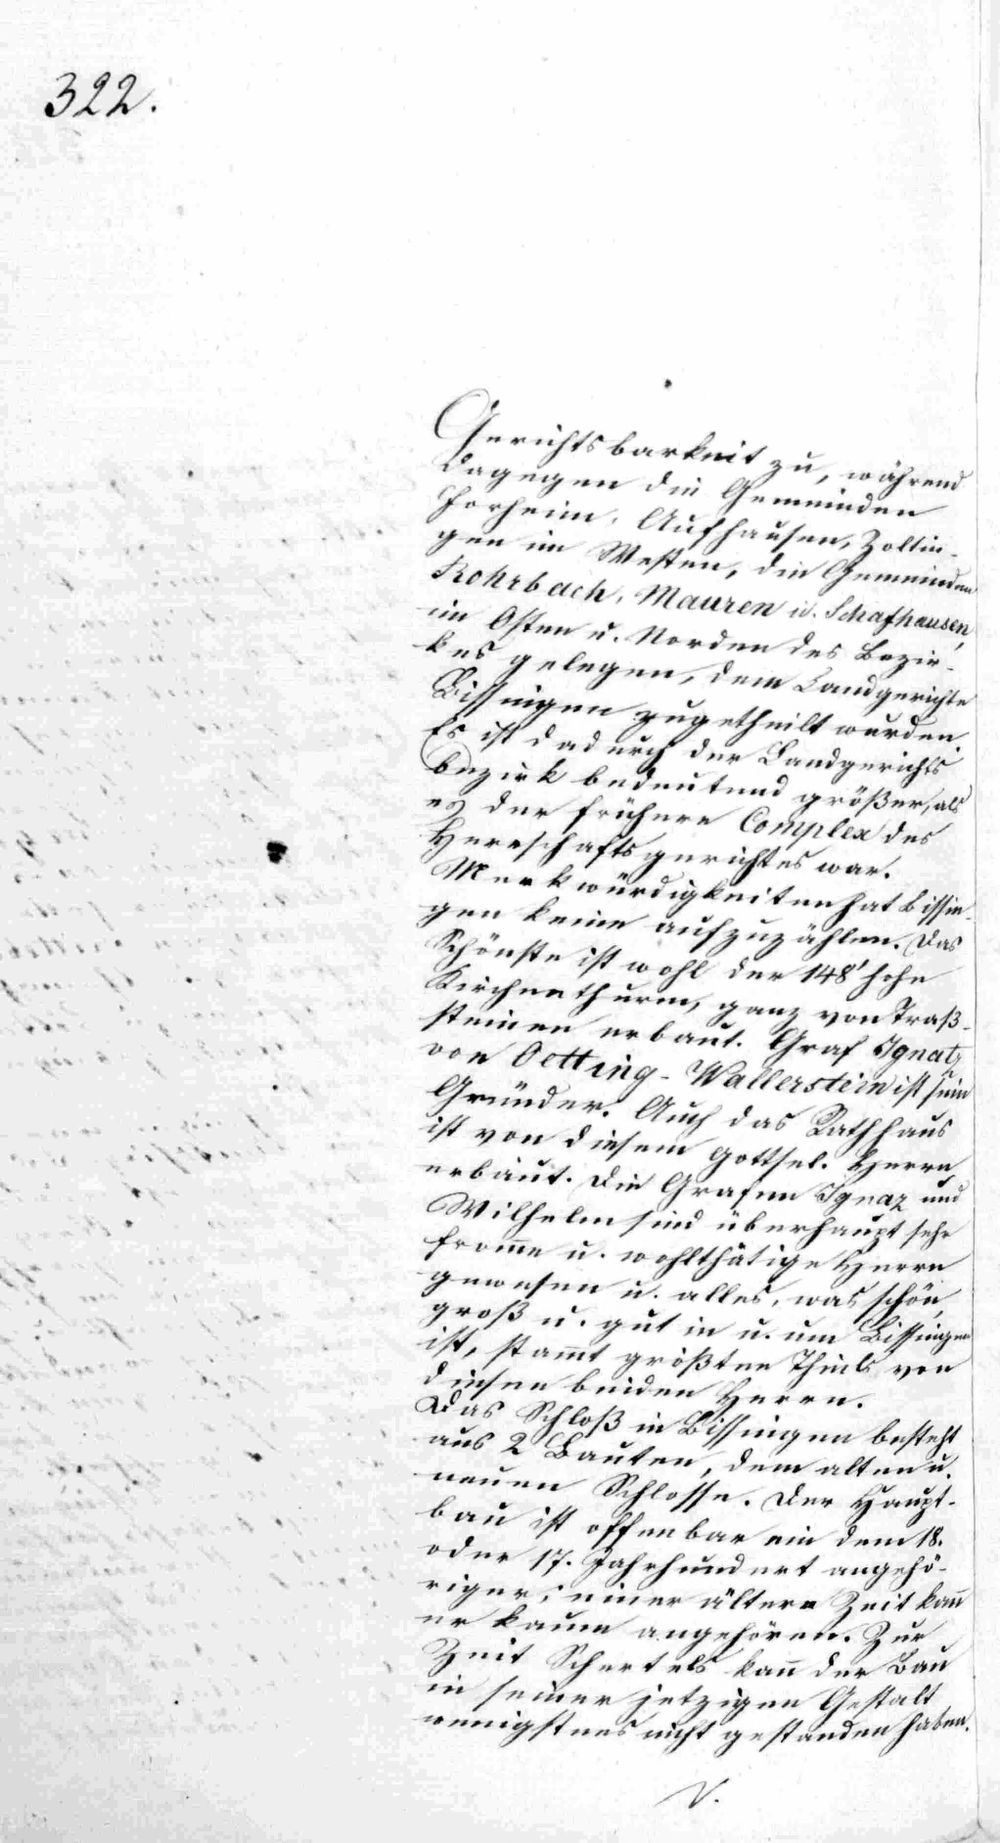 322.
Gerichtsbarkeit zu, während
dagegen die Gemeinden
Forheim, Aufhausen, Zoltin-
gen im Westen, die Gemeinden
Rohrbach, Mauren u. Schafhausen,
im Osten u. Norden des Bezir-
kes gelegen, dem Landgerichte
Bissingen zugetheilt wurden.
Es ist dadurch der Landgerichts
bezirk bedeutend größer, als
es der frühere Complex des
Herrschaftsgerichtes war.
Merkwürdigkeiten hat Bissin-
gen keine aufzuzählen. Das
Schönste ist wohl der 148' hohe
Kirchenthurm, ganz von Traß-
steinen erbaut. Graf Ignatz
von Oetting-Wallerstein ist sein
Gründer. Auch das Rathhaus
ist von diesem gottsel. Herrn
erbaut. Die Grafen Ignaz und
Wilhelm sind überhaupt sehr
from̄e u. wohlthätige Herrn
gewesen u. alles, was schön,
groß u. gut in u. um Bissingen
ist, stam̄t größten Theils von
diesen beiden Herrn.
Das Schloß in Bissingen besteht
aus 2 Bauten, dem alten u.
neuen Schlosse. Der Haupt-
bau ist offenbar ein dem 18.
oder 17. Jahrhundert angehö-
riger; einer ältern Zeit kan̄
er kaum angehören. Zur
Zeit Schertels kan̄ der Bau
in seiner jetzigen Gestalt
wenigstens nicht gestanden haben.
V.